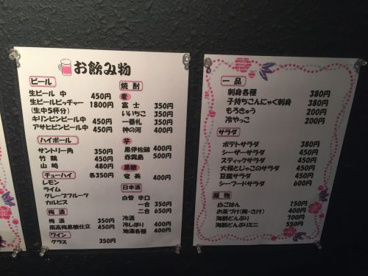 お飲み物
ビール
生ビール 中 450円
生ビールピッチャー 1800円
(生中5杯分)
キリンビン中 450円
アサヒビン中 450円
ハイボール
サントリー角 350円
竹鶴 450円
山崎 480円
チューハイ 各350円
レモン
ライム
グレープフルーツ
カルピス
梅酒
梅酒 350円
450円
ワイン
グラス 350円
焼酎
麦
富士 350円
いいちこ 350円
一番札 350円
神の河 400円
芋
黒伊佐錦 400円
赤霧島 500円
黒糖
400円
日本酒
白雪 辛口
一合 350円
二合 650円
冷酒
冷しぼり 400円
地酒各種 400円
一品
刺身各種 380円
子持ちこんにゃく刺身 380円
もろきゅう 200円
冷やっこ 200円
サラダ
ポテトサラダ 380円
シーザーサラダ 450円
スティックサラダ 450円
大根とじゃこのサラダ 450円
豆腐サラダ 450円
シーフードサラダ 600円
白ごはん 150円
お茶づけ(梅・さけ) 400円
海鮮どんぶり 700円
海鮮どんぶりミニ 550円